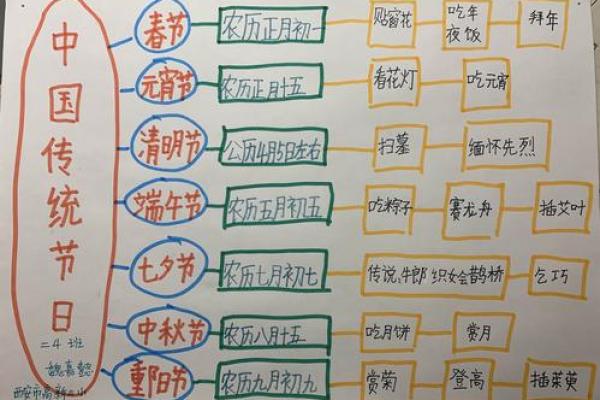 中国传统节日
二4班
魏嘉懿
西安市高新一小
春节 农历正月初一 贴窗花 吃年夜饭 拜年
元宵节 农历正月十五 看花灯 吃元宵
清明节 公历4月5日左右 扫墓 缅怀先烈
端午节 农历五月初五 吃粽子 赛龙舟 插艾叶
七夕节 农历七月初七 传说:牛郎织女会鹊桥 乞巧
中秋节 农历八月十五 吃月饼 赏月
重阳节 农历九月初九 赏菊 登高 插茱萸